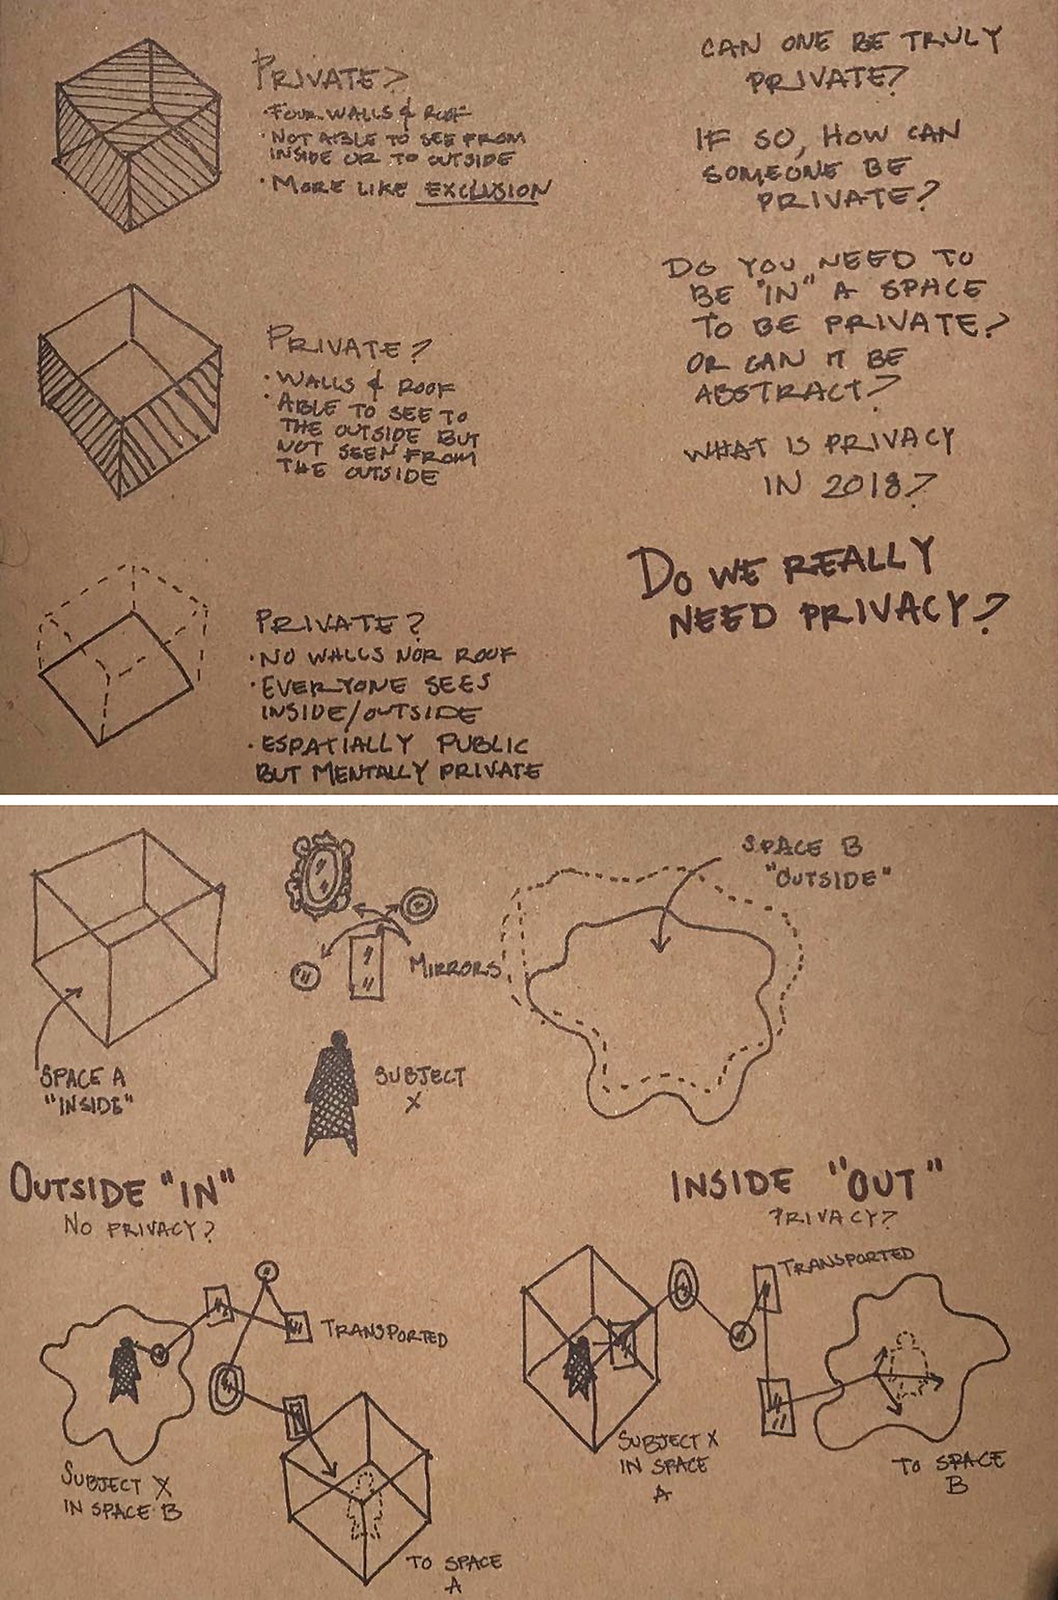 PRIVATE?
· FOUR WALLS & ROOF
· NOT AIBLE TO SEE FROM
INSIDE OR TO OUTSIDE
· MORE LIKE EXCLUSION
PRIVATE?
· WALLS & ROOF
· ABLE TO SEE TO
THE OUTSIDE BUT
NOT SEEN FROM
THE OUTSIDE
PRIVATE?
· NO WALLS NOR ROOF
· EVERYONE SEES
INSIDE/OUTSIDE
· ESPATIALLY PUBLIC
BUT MENTALLY PRIVATE
CAN ONE BE TRULY
PRIVATE?
IF SO, HOW CAN
SOMEONE BE
PRIVATE?
DO YOU NEED TO
BE "IN" A SPACE
TO BE PRIVATE?
OR CAN IT BE
ABSTRACT?
WHAT IS PRIVACY
IN 2018?
DO WE REALLY
NEED PRIVACY?
SPACE A
"INSIDE"
MIRRORS
SUBJECT
X
SPACE B
"OUTSIDE"
OUTSIDE "IN"
NO PRIVACY?
TRANSPORTED
SUBJECT X
IN SPACE B
TO SPACE
A
INSIDE "OUT"
PRIVACY?
TRANSPORTED
SUBJECT X
IN SPACE
A
TO SPACE
B